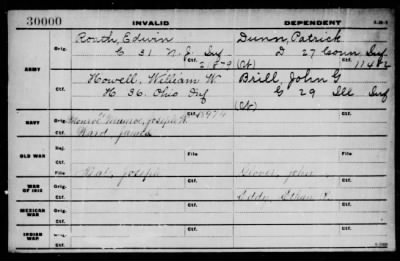 30000 INVALID DEPENDENT
ARMY
Orig. Routh, Edwin Dunn, Patrick
G 31 N.J. Inf D 27 Conn Inf
Ctf. (Ct)
Ctf. Howell, William W Brill, John G
H 36 Ohio Inf G 29 Ill Inf
(Ct)
NAVY
Orig. Monroe Munroe, Joseph W.
Ctf. Ward, James
OLD WAR
File File
Ctf. Ctf.
WAR OF 1812
Orig. Neal, Joseph Glover, John
Ctf. Eddy, Ethan
MEXICAN WAR
Orig.
Ctf. Ctf.
INDIAN WAR
Orig.
Ctf. Ctf.